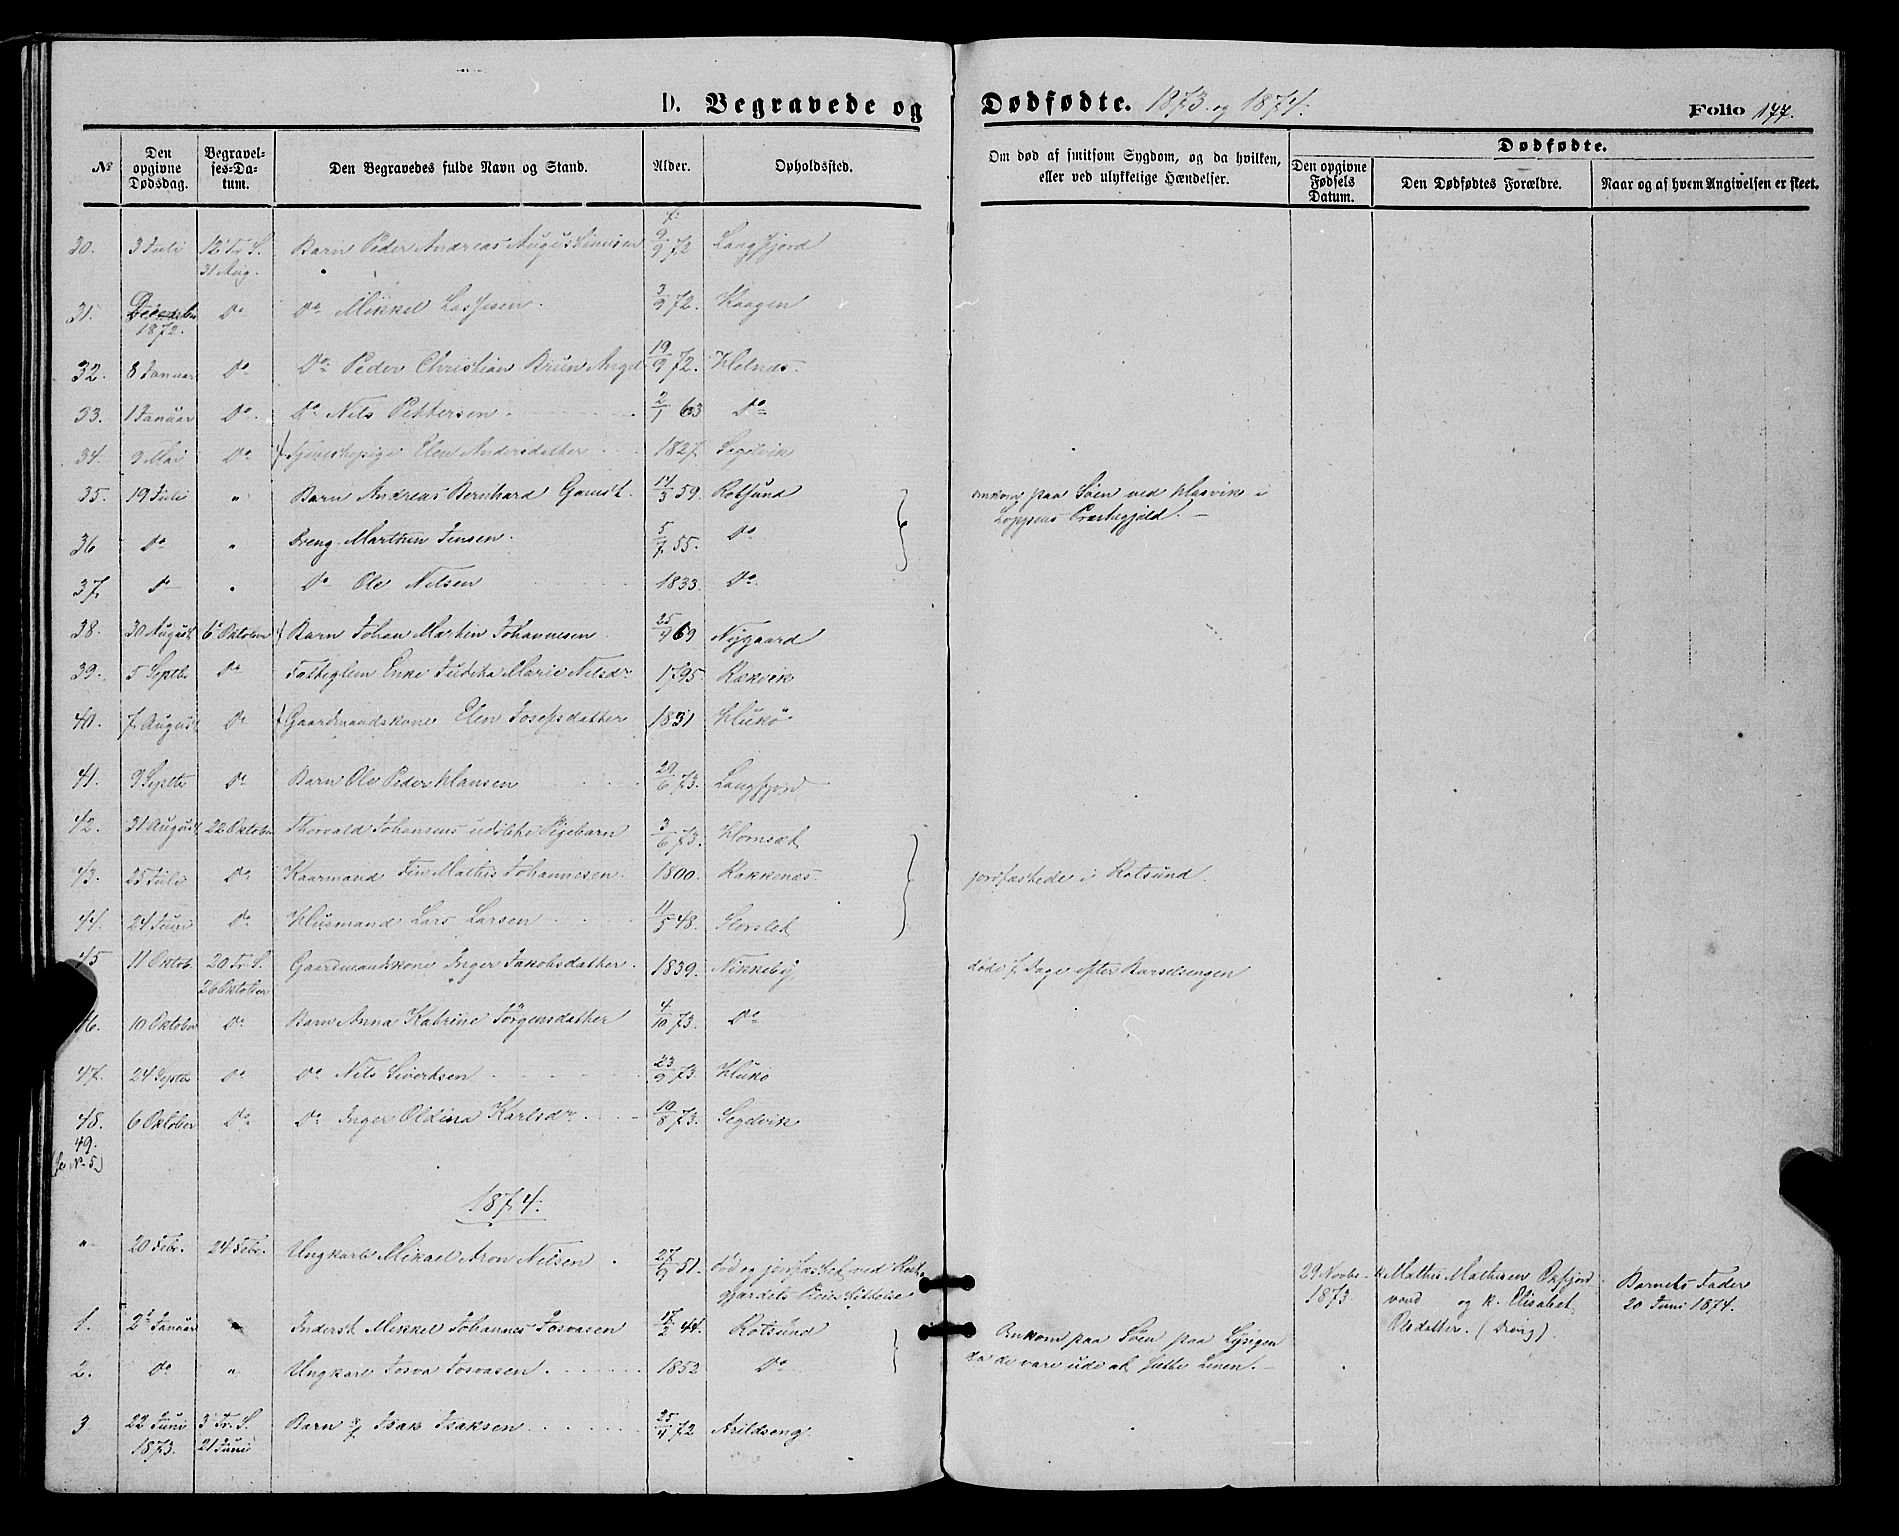 D. Begravede og Dødfødte. 1873 og 1874.
Folio 177.
No
Den opgivne Dødsdag.
Begravelses-Datum.
Den Begravedes fulde Navn og Stand.
Alder.
Opholdssted.
Om død af smitsom Sygdom, og da hvilken, eller ved ulykkelige Hændelser.
Dødfødte.
Den opgivne Fødsels Datum.
Den Dødfødtes Forældre.
Naar og af hvem Angivelsen er skeet.
30. 3 Juli 12 Tr. S. 31 Aug. Barn Peder Andreas Augustinusen 9/9 72 Langfjord
31. 1872. Do Do Mikkel Lassesen 3/9 72. Kaagen
32. 8 Januar Do Do Peder Christian Brun 19/9 72. Holnæs
33. 1 Januar Do. Do Nils Pettersen 2/1 63 Do
34. 9 Mai Do Tjenestepige Elen Andersdatter 1827. Segelvik
35. 19 Juli " Barn Andreas Bernhard Gamst. 14/3 59. Rotsund
omkom paa Søen ved Hasvik i
Loppens Præstegjeld.
36 Do " Dreng Marthin Jensen. 5/7 55. Do
37. Do " Do Ole Nilsen 1833. Do
38. 30 August 6 Oktober Barn Johan Martin Johannesen 25/4 69 Nygaard
39. 5 Septbr Do Fattiglem Enke Juditha Marie Nilsdr 1795. Rakvik
40. 7 August Do Gaardmandskone Elen Josefsdatter 1831 Hukö
41. 9 Septbr Do Barn Ole Peder Hansen 29/6 73. Langfjord
42. 31 August 22 Oktober Thorvald Johansens udøbte Pigebarn 3/6 73. Hamsæt
43. 25 Juli Do Kaarmand Mathis Johannesen. 1800. Rakkenæs
jordfæstede i Rotsund.
44. 24 Juni Do Husmand Lars Larsen 11/5 48. Storslet
45 11 Oktob. 20 Tr. S. 26 Oktober Gaardmandskone Inger Jakobsdatter. 1839. Nikkeby
døde 7 Dage efter Barselsengen
46. 10 Oktober Do Barn Anna Katrine Jörgensdatter 4/10 73. Do
47. 24 Septbr Do Do Nils Sivertsen 23/9 73. Hukö
48. 6 Oktober Do Do Inger Oldina Karlsdr 19/8 73. Segelvik
49.
(se No 5.)
1874.
" 20 Febr. 24 Febr. Ungkarl Mikael Aron Nilsen 27/9 51. død og jordfæstet ved
29 Novbr 1873. Mathis Mathisen Oxfjord-
vand og k. Elisabet
Olsdatter. (Dreng)
Barnets Fader
20 Juni 1874.
1. 2 Januar " Inderst Mikkel Johannes Josvasen 17/2 44. Rotsund
Omkom paa Søen paa Lyngen
da de vare ude at sætte Linen.
2. Do " Ungkarl Josva Josvasen. 1852 Do
3 22 Juni 1873. 3 Tr. S. 21 Juni Barn Isak Isaksen 25/4 72 Arildseng